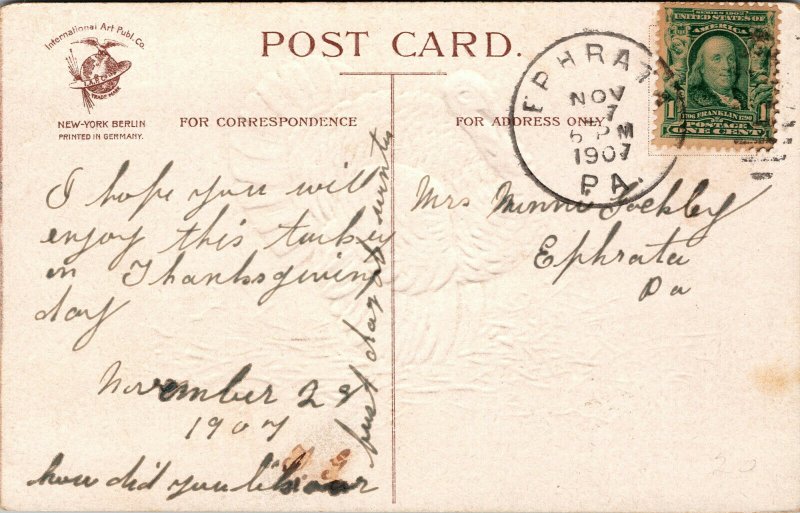 International Art Publ. Co.
TRADE MARK
NEW-YORK BERLIN
PRINTED IN GERMANY.
POST CARD.
FOR CORRESPONDENCE
FOR ADDRESS ONLY
EPHRATA
NOV
7
6 PM
1907
PA.
SERIES 1902
UNITED STATES OF
AMERICA
1 1
1706 FRANKLIN 1790
POSTAGE
ONE CENT
I hope you will
enjoy this turkey
on Thanksgiving
day
November 28
1907
how did you like our
first day of winter
Mrs Minnie
Ephrata
Pa